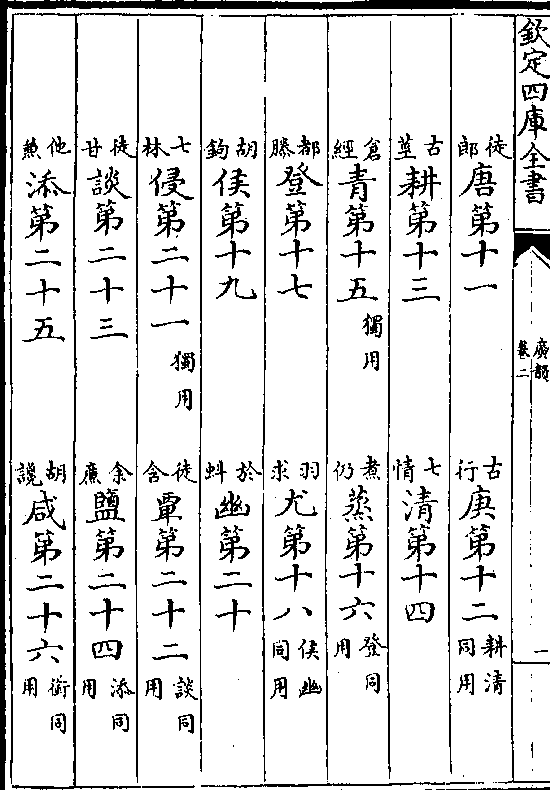 欽定四庫全書
廣韻
卷二
一
徒郎唐第十一 古行庚第十二耕清同用
古莖耕第十三 七情清第十四
倉經青第十五獨用 煮仍蒸第十六登同用
都滕登第十七 羽求尤第十八侯幽同用
胡鉤侯第十九 於蚪幽第二十
七林侵第二十一獨用 徒含覃第二十二談同用
徒甘談第二十三 余廉鹽第二十四添同用
他兼添第二十五 胡讒咸第二十六銜同用